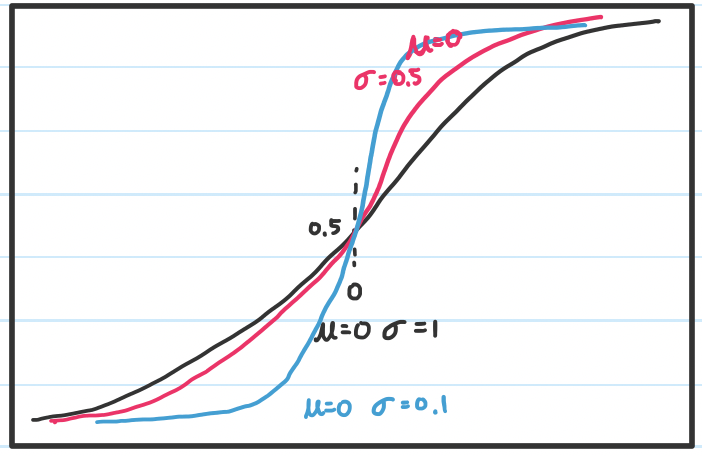 μ=0
σ=0.5
0.5
0
μ=0 σ=1
μ=0 σ=0.1